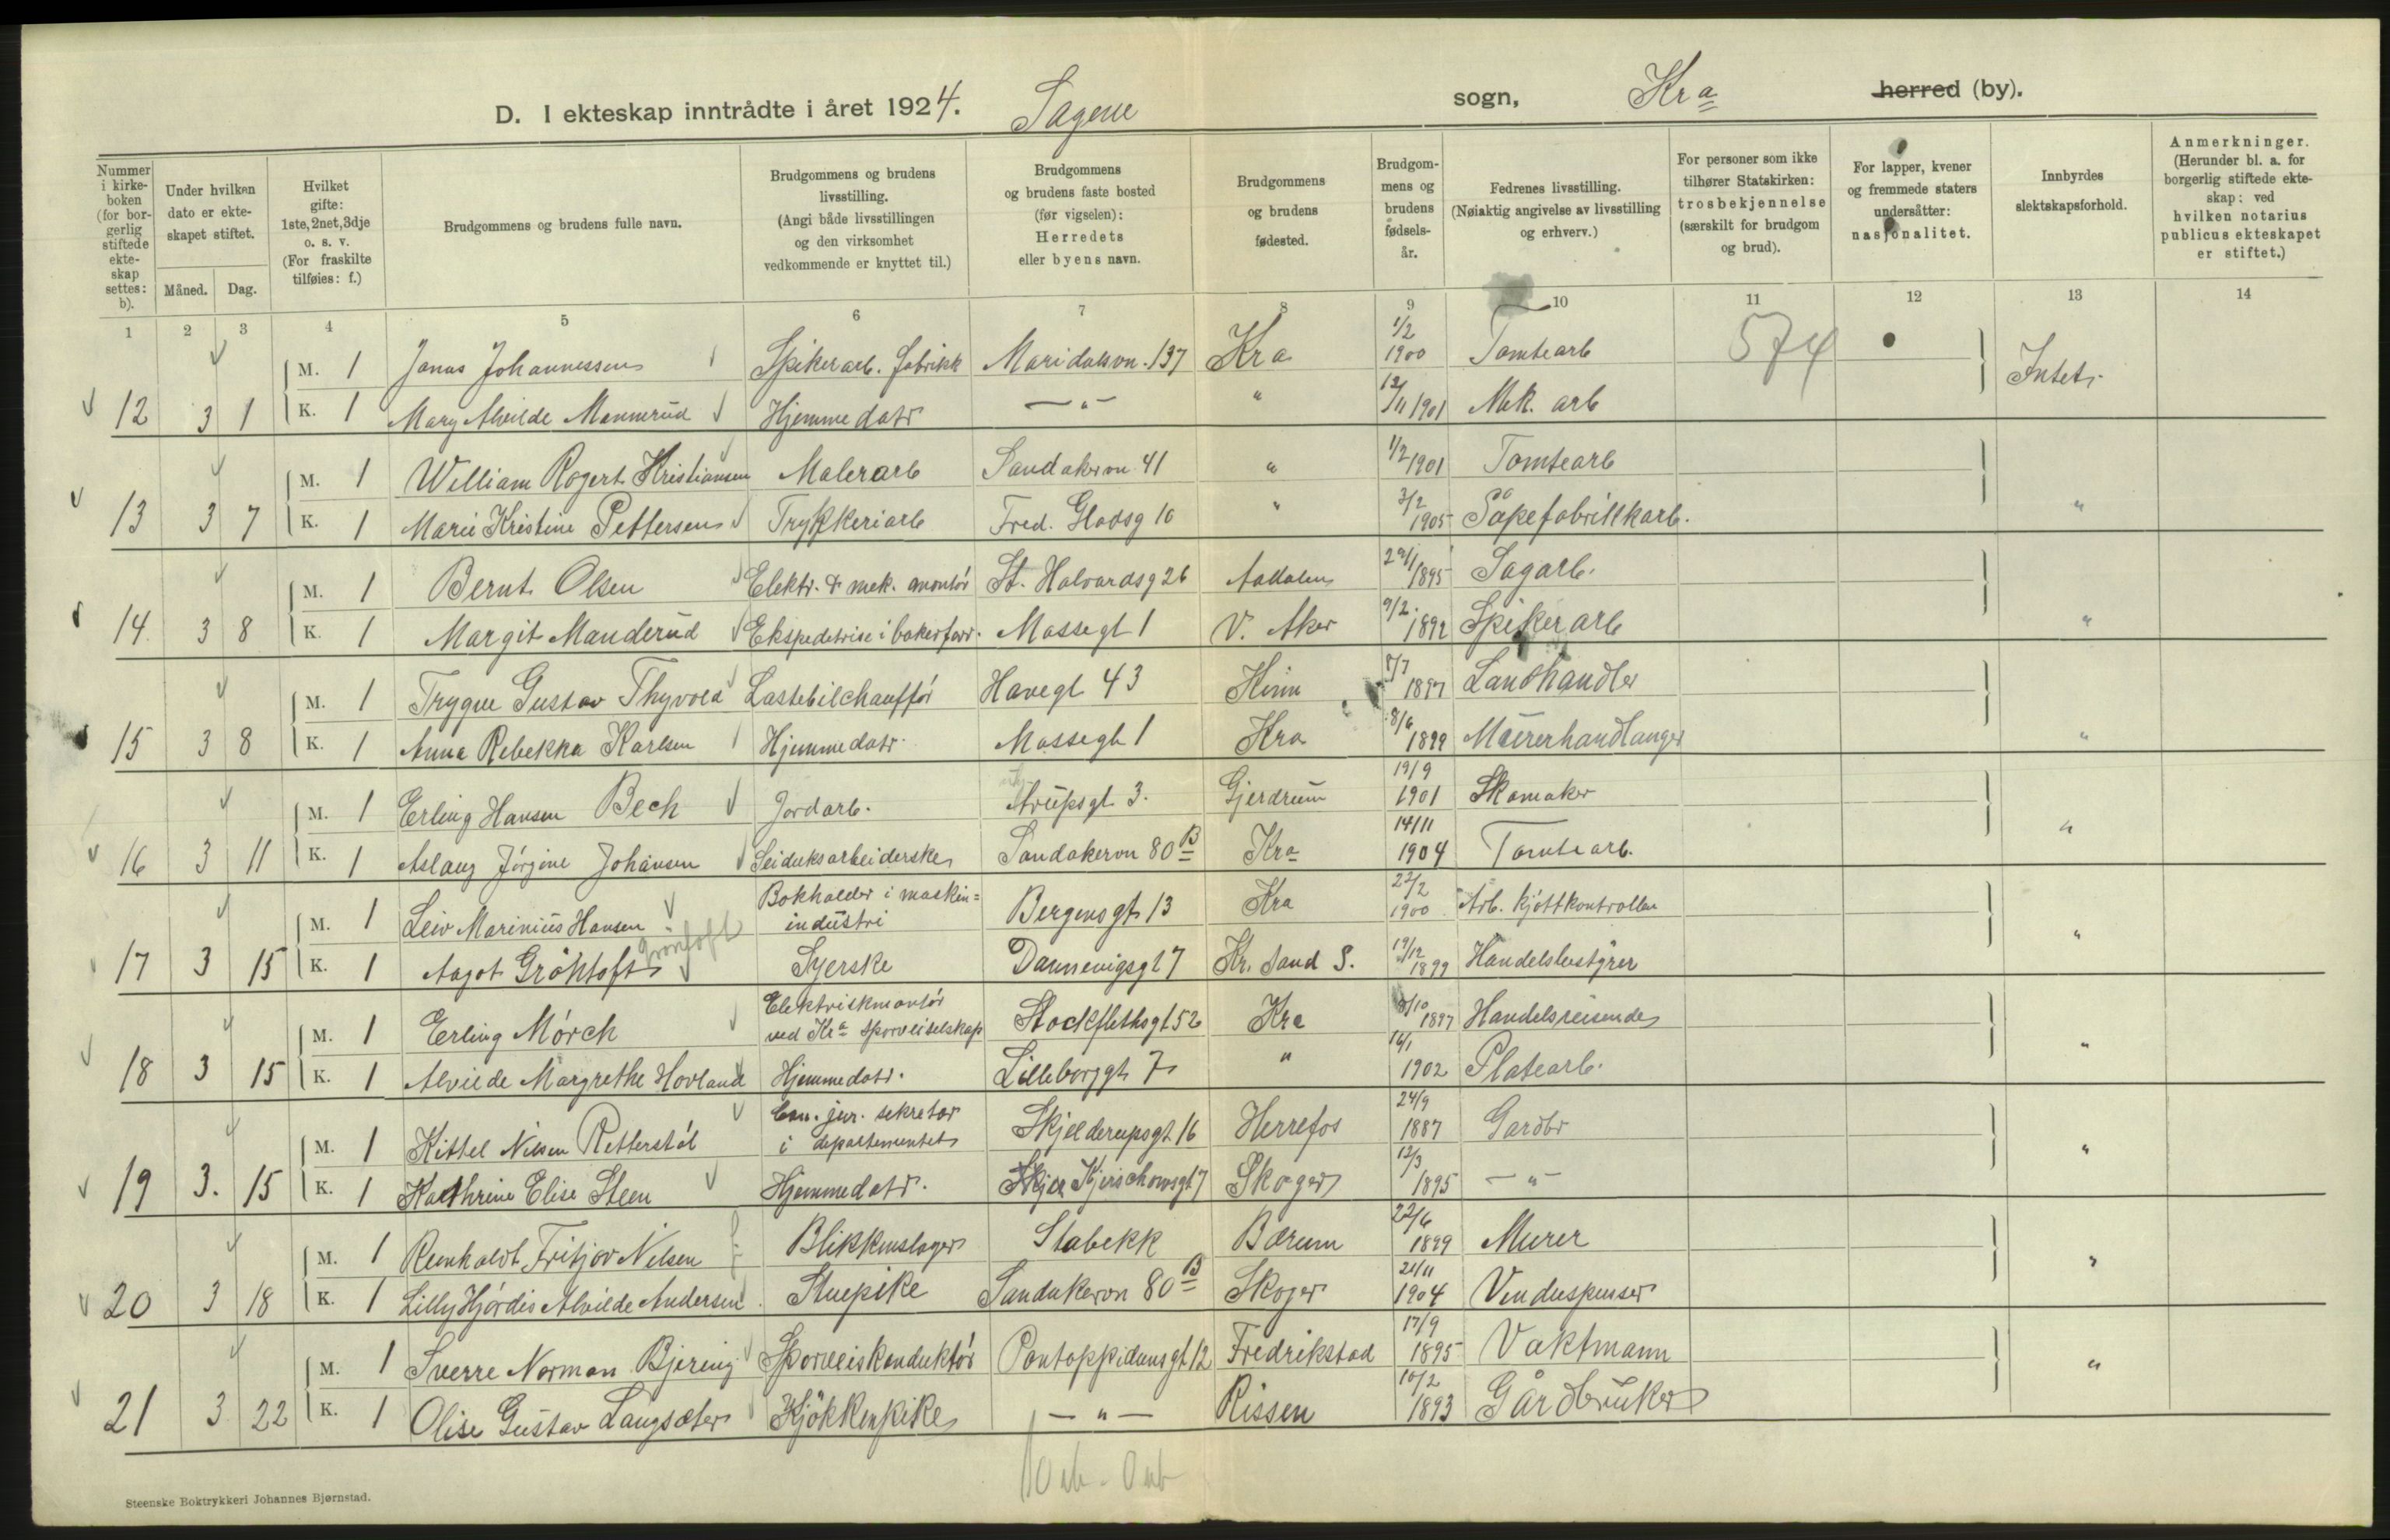 D. I ekteskap inntrådte i året 1924. Sagene sogn, Kra herred (by).
Nummer i kirkeboken (for borgerlig stiftede ekteskap settes: b).
Under hvilken dato er ekteskapet stiftet.
Måned. Dag.
Hvilket gifte: 1ste, 2net, 3dje o. s. v. (For fraskilte tilføies: f.)
Brudgommens og brudens fulle navn.
Brudgommens og brudens livsstilling. (Angi både livsstillingen og den virksomhet vedkommende er knyttet til.)
Brudgommens og brudens faste bosted (før vigselen): Herredets eller byens navn.
Brudgommens og brudens fødested.
Brudgommens og brudens fødselsår.
Fedrenes livsstilling. (Nøiaktig angivelse av livsstilling og erhverv.)
For personer som ikke tilhører Statskirken: trosbekjennelse (særskilt for brudgom og brud).
For lapper, kvener og fremmede staters undersåtter: nasjonalitet.
Innbyrdes slektskapsforhold.
Anmerkninger. (Herunder bl. a. for borgerlig stiftede ekteskap: ved hvilken notarius publicus ekteskapet er stiftet.)
1 2 3 4 5 6 7 8 9 10 11 12 13 14
M. 1 Jonas Johannessen Spikerarb. fabrikk Maridalsvn. 137 Kra 1/2 1900 Tomtearb 574
12 3 1 K. 1 Mary Alvilde Mannerud Hjemmedatr — " — " 12/11 1901 Mek. arb Intet
M. 1 William Rogert Kristiansen Malerarb Sandakervn 41 " 1/2 1901 Tomtearb
13 3 7 K. 1 Marie Kristine Pettersen Trykkeriarb Fred. Gladsg 10 " 3/2 1905 Såpefabrikkarb. "
M. 1 Bernt Olsen Elektr. & mek. montör St. Halvardsg 26 Aadalen 29/1 1895 Sagarb.
14 3 8 K. 1 Margit Manderud Ekspedetrise i bakerforr. Mossegt 1 V. Aker 9/2 1892 Spikerarb "
M. 1 Trygve Gustav Thyvold Lastebilchaufför Havegt 43 Kinn 8/7 1897 Landhandler
15 3 8 K. 1 Anna Rebekka Karlsen Hjemmedatr. Mossegt 1 Kra 8/6 1899 Murerhandlanger "
M. 1 Erling Hansen Bech Jordarb. Arupsgt 3. Gjerdrum 19/9 1901 Skomaker
16 3 11 K. 1 Aslaug Jörgine Johansen Seiduksarbeiderske Sandakervn 80 B Kra 14/11 1904 Tomtearb. "
M. 1 Leiv Marinius Hansen Bokholder i maskinindustri Bergensgt 13 Kra 22/2 1900 Arb. kjöttkontrollen
17 3 15 K. 1 Aagot Gröhtoft Grönfoft Syerske Dannevigsgt 7 Kr. Sand S. 19/12 1899 Handelsbestyrer "
M. 1 Erling Mörch Elektriskmontör ved Kra sporveiselskap Stockflethsgt 52 Kra 8/10 1897 Handelsreisende
18 3 15 K. 1 Alvilde Margrethe Hovland Hjemmedatr. Lilleborggt 7 " 16/1 1902 Platearb. "
M. 1 Kittel Nilsen Retterstöl Can. jur. sekretær i departementet Skjelderupsgt 16 Herrefos 24/9 1887 Gardbr
19 3. 15 K. 1 Kathrine Elise Steen Hjemmedatr. Kjerschowsgt 7 Skoger 12/3 1895 — " — "
M. 1 Reinholdt Fritjov Nilsen Blikkenslager Stabekk Bærum 22/6 1899 Murer
20 3 18 K. 1 Lilly Hjördis Alvilde Andersen Stuepike Sandakervn 80 B Skoger 21/11 1904 Venduspenser "
M. 1 Sverre Norman Bjering Sporveiskonduktör Pontoppidansgt 12 Fredrikstad 17/9 1895 Vaktmann
21 3 22 K. 1 Olise Gustav Langsæter Kjökkenpike — " — Rissen 10/2 1893 Gårdbruker "
Steenske Boktrykkeri Johannes Bjørnstad.